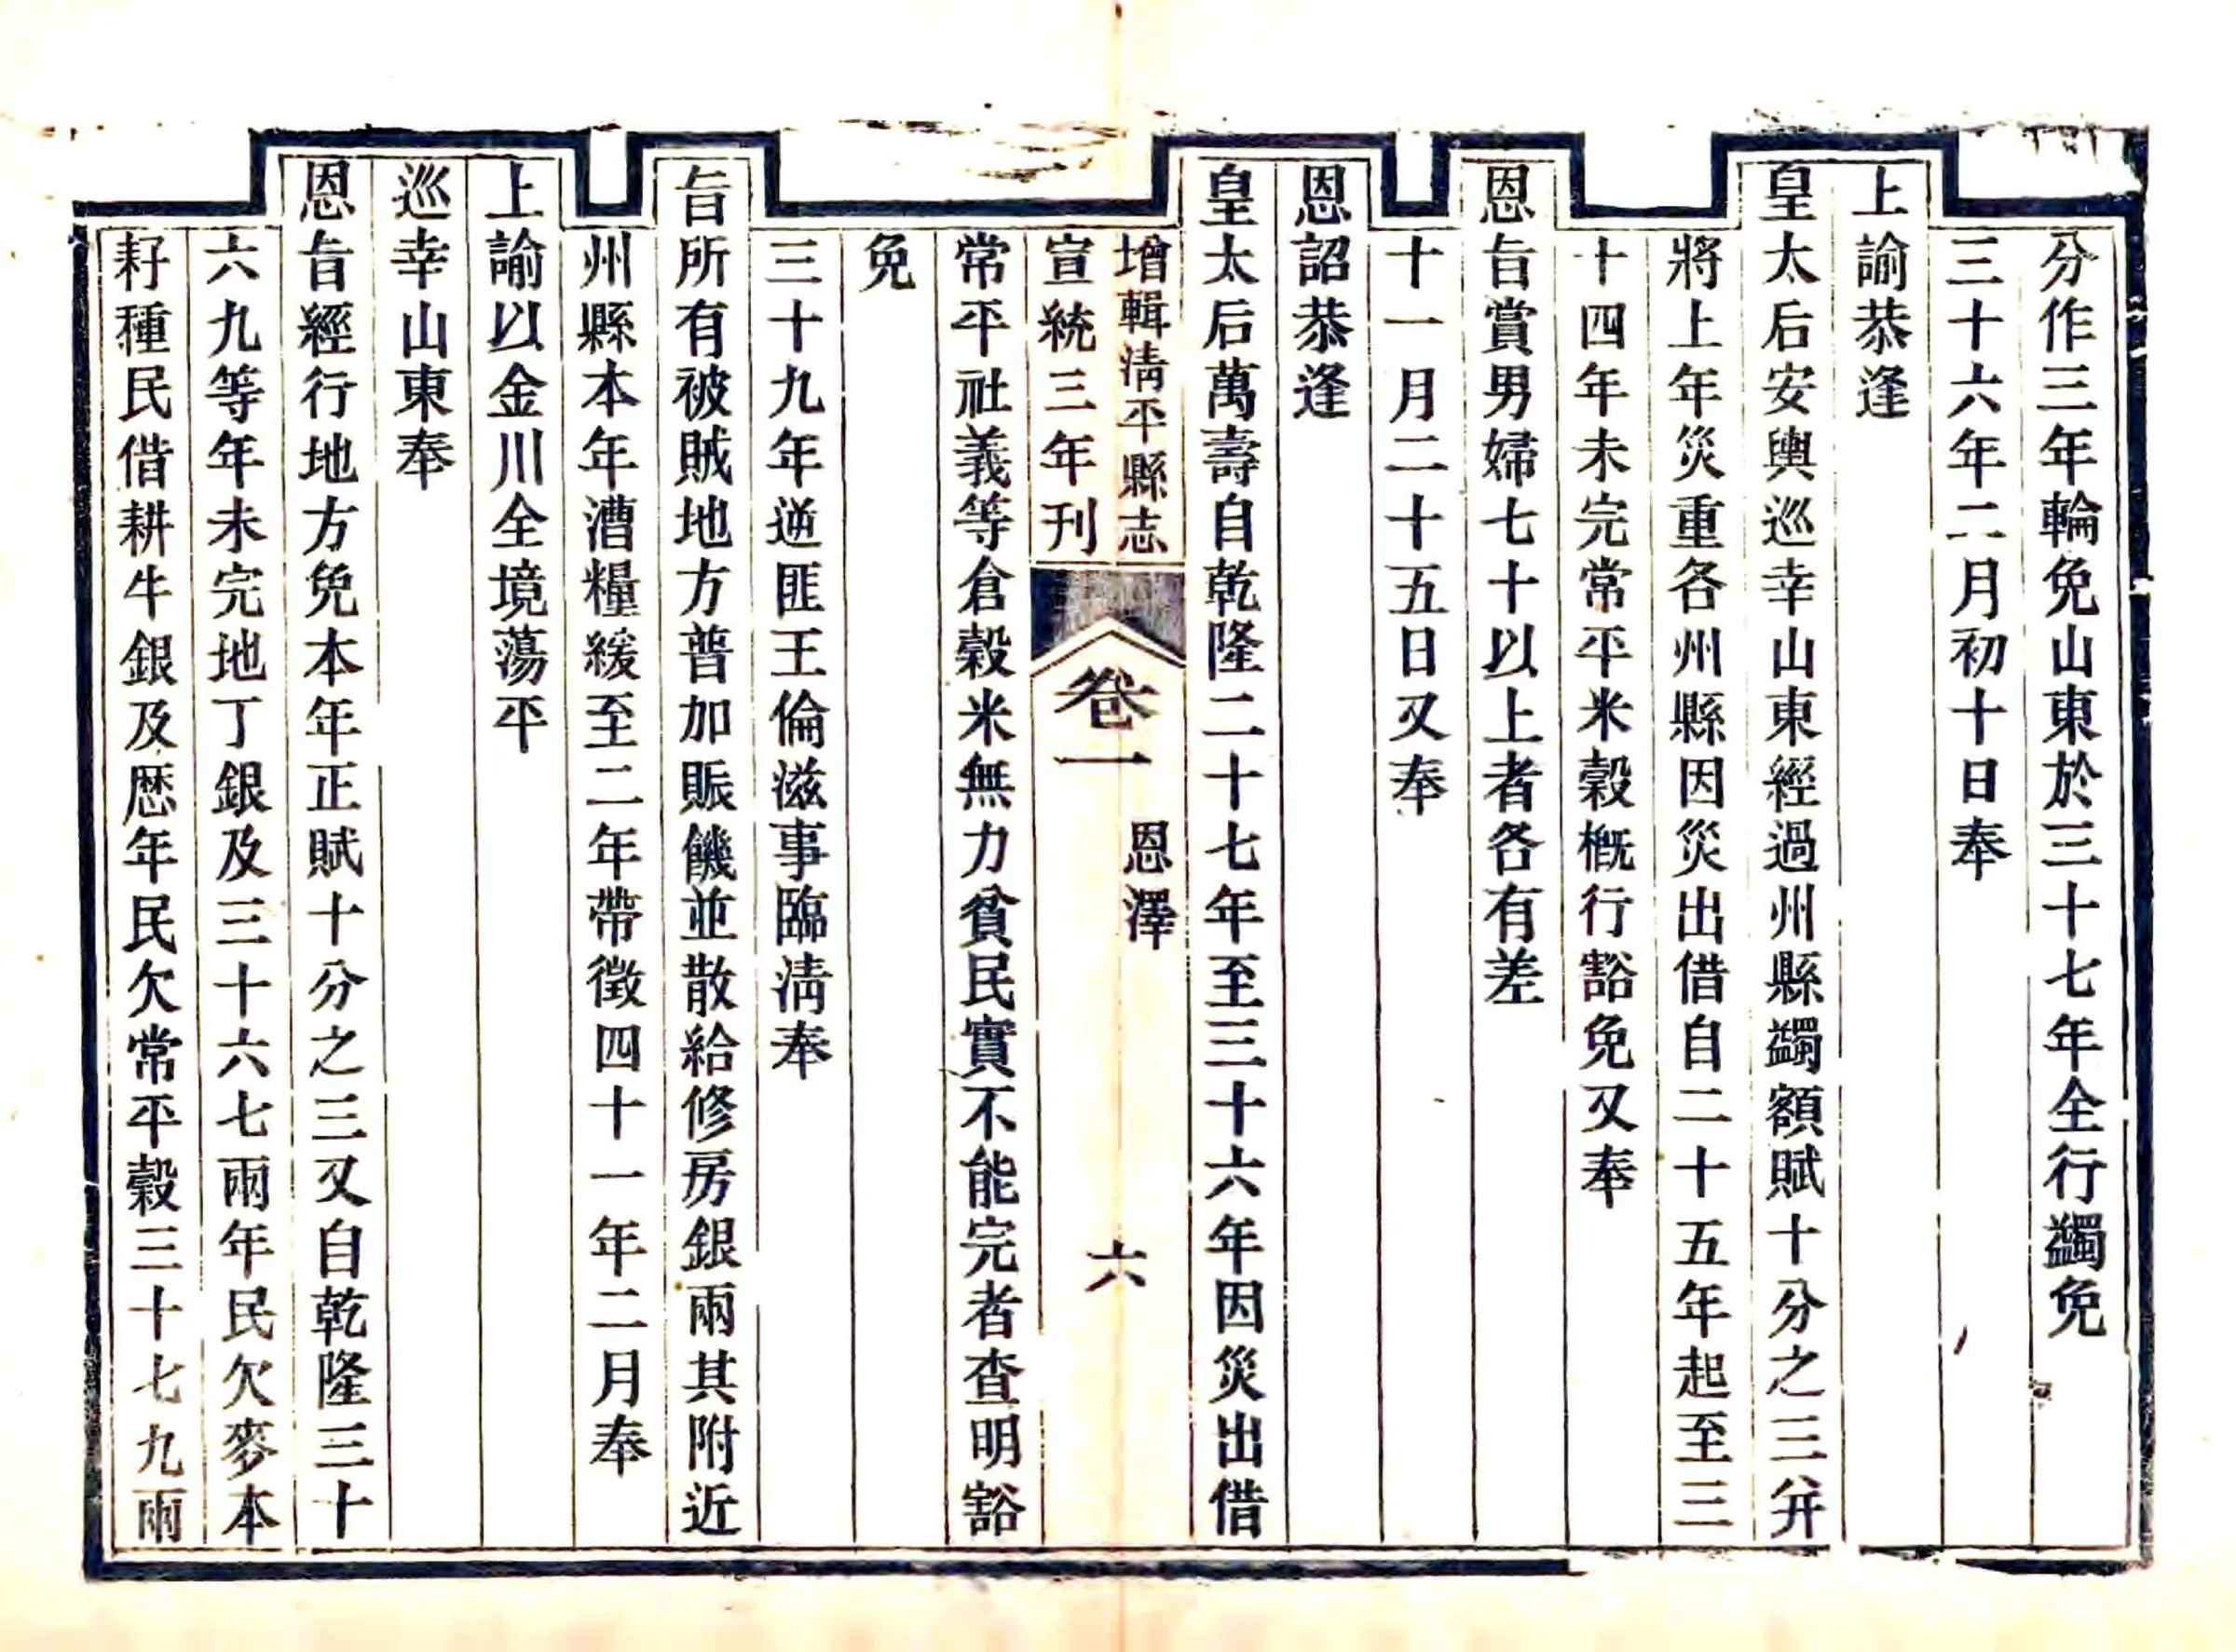 分作三年輪免山東於三十七年全行蠲免
三十六年二月初十日奉
上諭恭逢
皇太后安輿巡幸山東經過州縣蠲額賦十分之三并
將上年災重各州縣因災出借自二十五年起至三
十四年未完常平米穀概行豁免又奉
恩旨賞男婦七十以上者各有差
十一月二十五日又奉
恩詔恭逢
皇太后萬壽自乾隆二十七年至三十六年因災出借
增輯清平縣志
宣統三年刊
卷一
恩澤
六
常平社義等倉穀米無力貧民實不能完者查明豁
免
三十九年逆匪王倫滋事臨清奉
旨所有被賊地方普加賑饑並散給修房銀兩其附近
州縣本年漕糧緩至二年帶徵四十一年二月奉
上諭以金川全境蕩平
巡幸山東奉
恩旨經行地方免本年正賦十分之三又自乾隆三十
六九等年未完地丁銀及三十六七兩年民欠麥本
耔種民借耕牛銀及歷年民欠常平穀三十七九兩